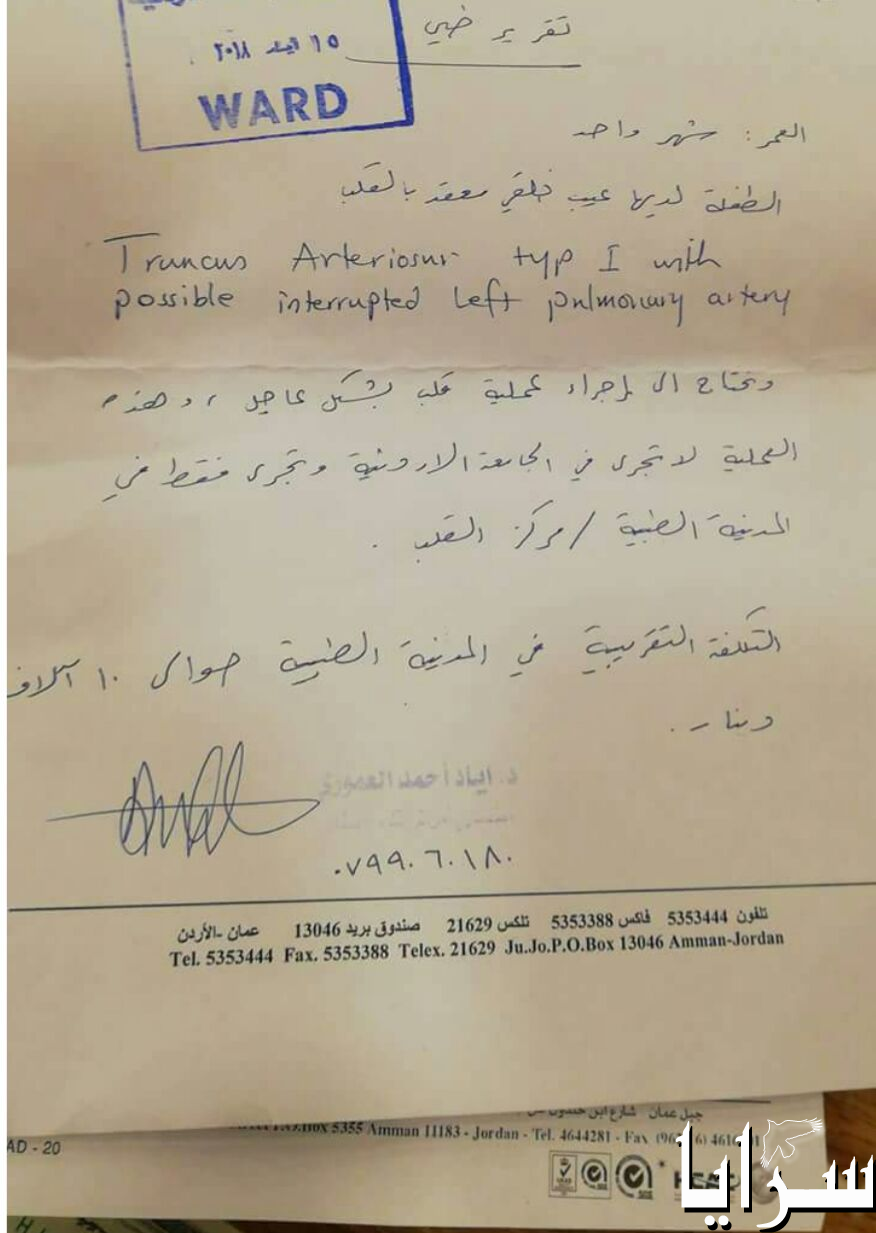 ١٥ ايار ٢٠١٨
WARD
تقرير طبي
العمر: شهر واحد
الطفلة لديها عيب خلقي معقد بالقلب
Truncus Arteriosus typ I with
possible interrupted left pulmonary artery
وتحتاج الى إجراء عملية قلب بشكل عاجل ، وهذه
العملية لا تجرى في الجامعة الاردنية وتجرى فقط في
المدينة الطبية / مركز القلب .
التكلفة التقريبية في المدينة الطبية حوالي ١٠ آلاف
دينار .
د. اياد أحمد العموري
٠٧٩٩٠٦٠١٨٠
تلفون 5353444 فاكس 5353388 تلكس 21629 صندوق بريد 13046 عمان -الأردن
Tel. 5353444 Fax. 5353388 Telex. 21629 Ju.Jo.P.O.Box 13046 Amman-Jordan
جبل عمان شارع ابن خلدون
Box 5355 Amman 11183 - Jordan - Tel. 4644281 - Fax
AD - 20
سرايا